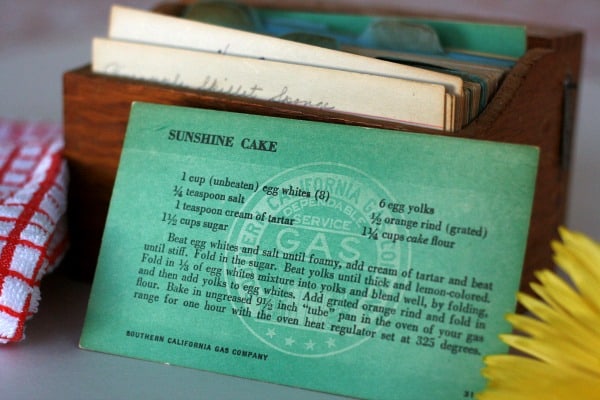 Skillet
SUNSHINE CAKE
1 cup (unbeaten) egg whites (8)
¼ teaspoon salt
1 teaspoon cream of tartar
1½ cups sugar
6 egg yolks
½ orange rind (grated)
1¼ cups cake flour
Beat egg whites and salt until foamy, add cream of tartar and beat
until stiff. Fold in the sugar. Beat yolks until thick and lemon-colored.
Fold in ⅓ of egg whites mixture into yolks and blend well, by folding,
and then add yolks to egg whites. Add grated orange rind and fold in
flour. Bake in ungreased 9½ inch "tube" pan in the oven of your gas
range for one hour with the oven heat regulator set at 325 degrees.
CALIFORNIA GAS
DEPENDABLE
SERVICE
GAS
SOUTHERN CALIFORNIA GAS COMPANY
31